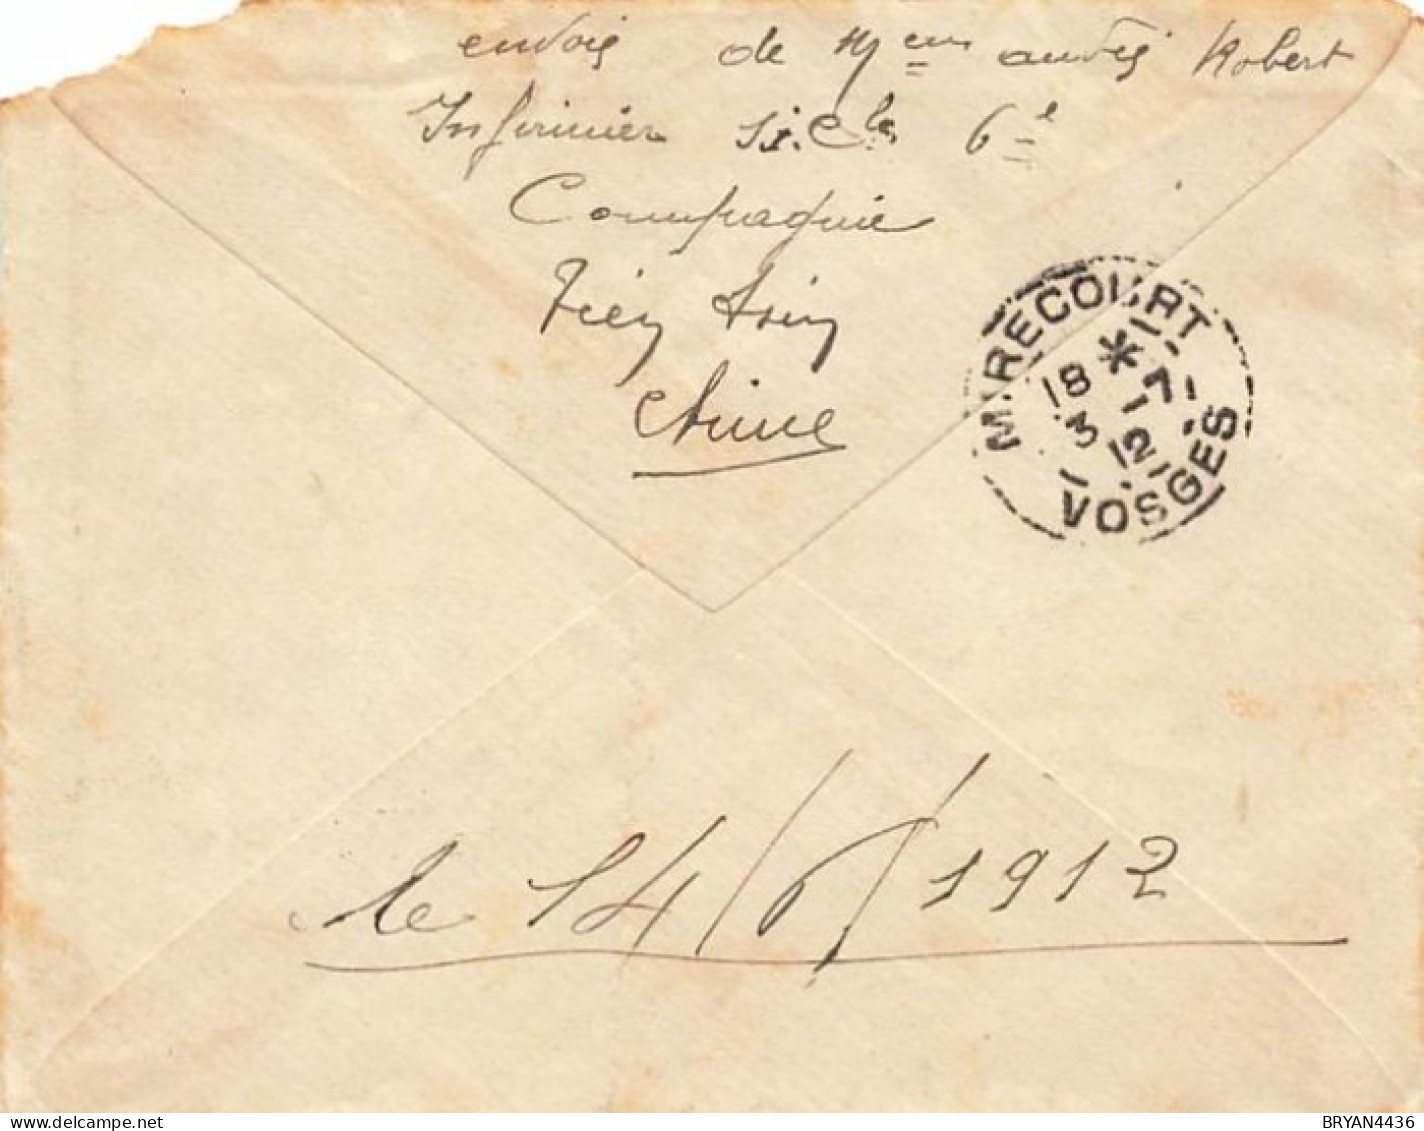 envois de Mr andré Robert
Infirmier 6e
Compagnie
Tien tsin
Chine
MIRECOURT
*
18 7
3 12
VOSGES
le 14/6/1912
delcampe.net
BRYAN4436